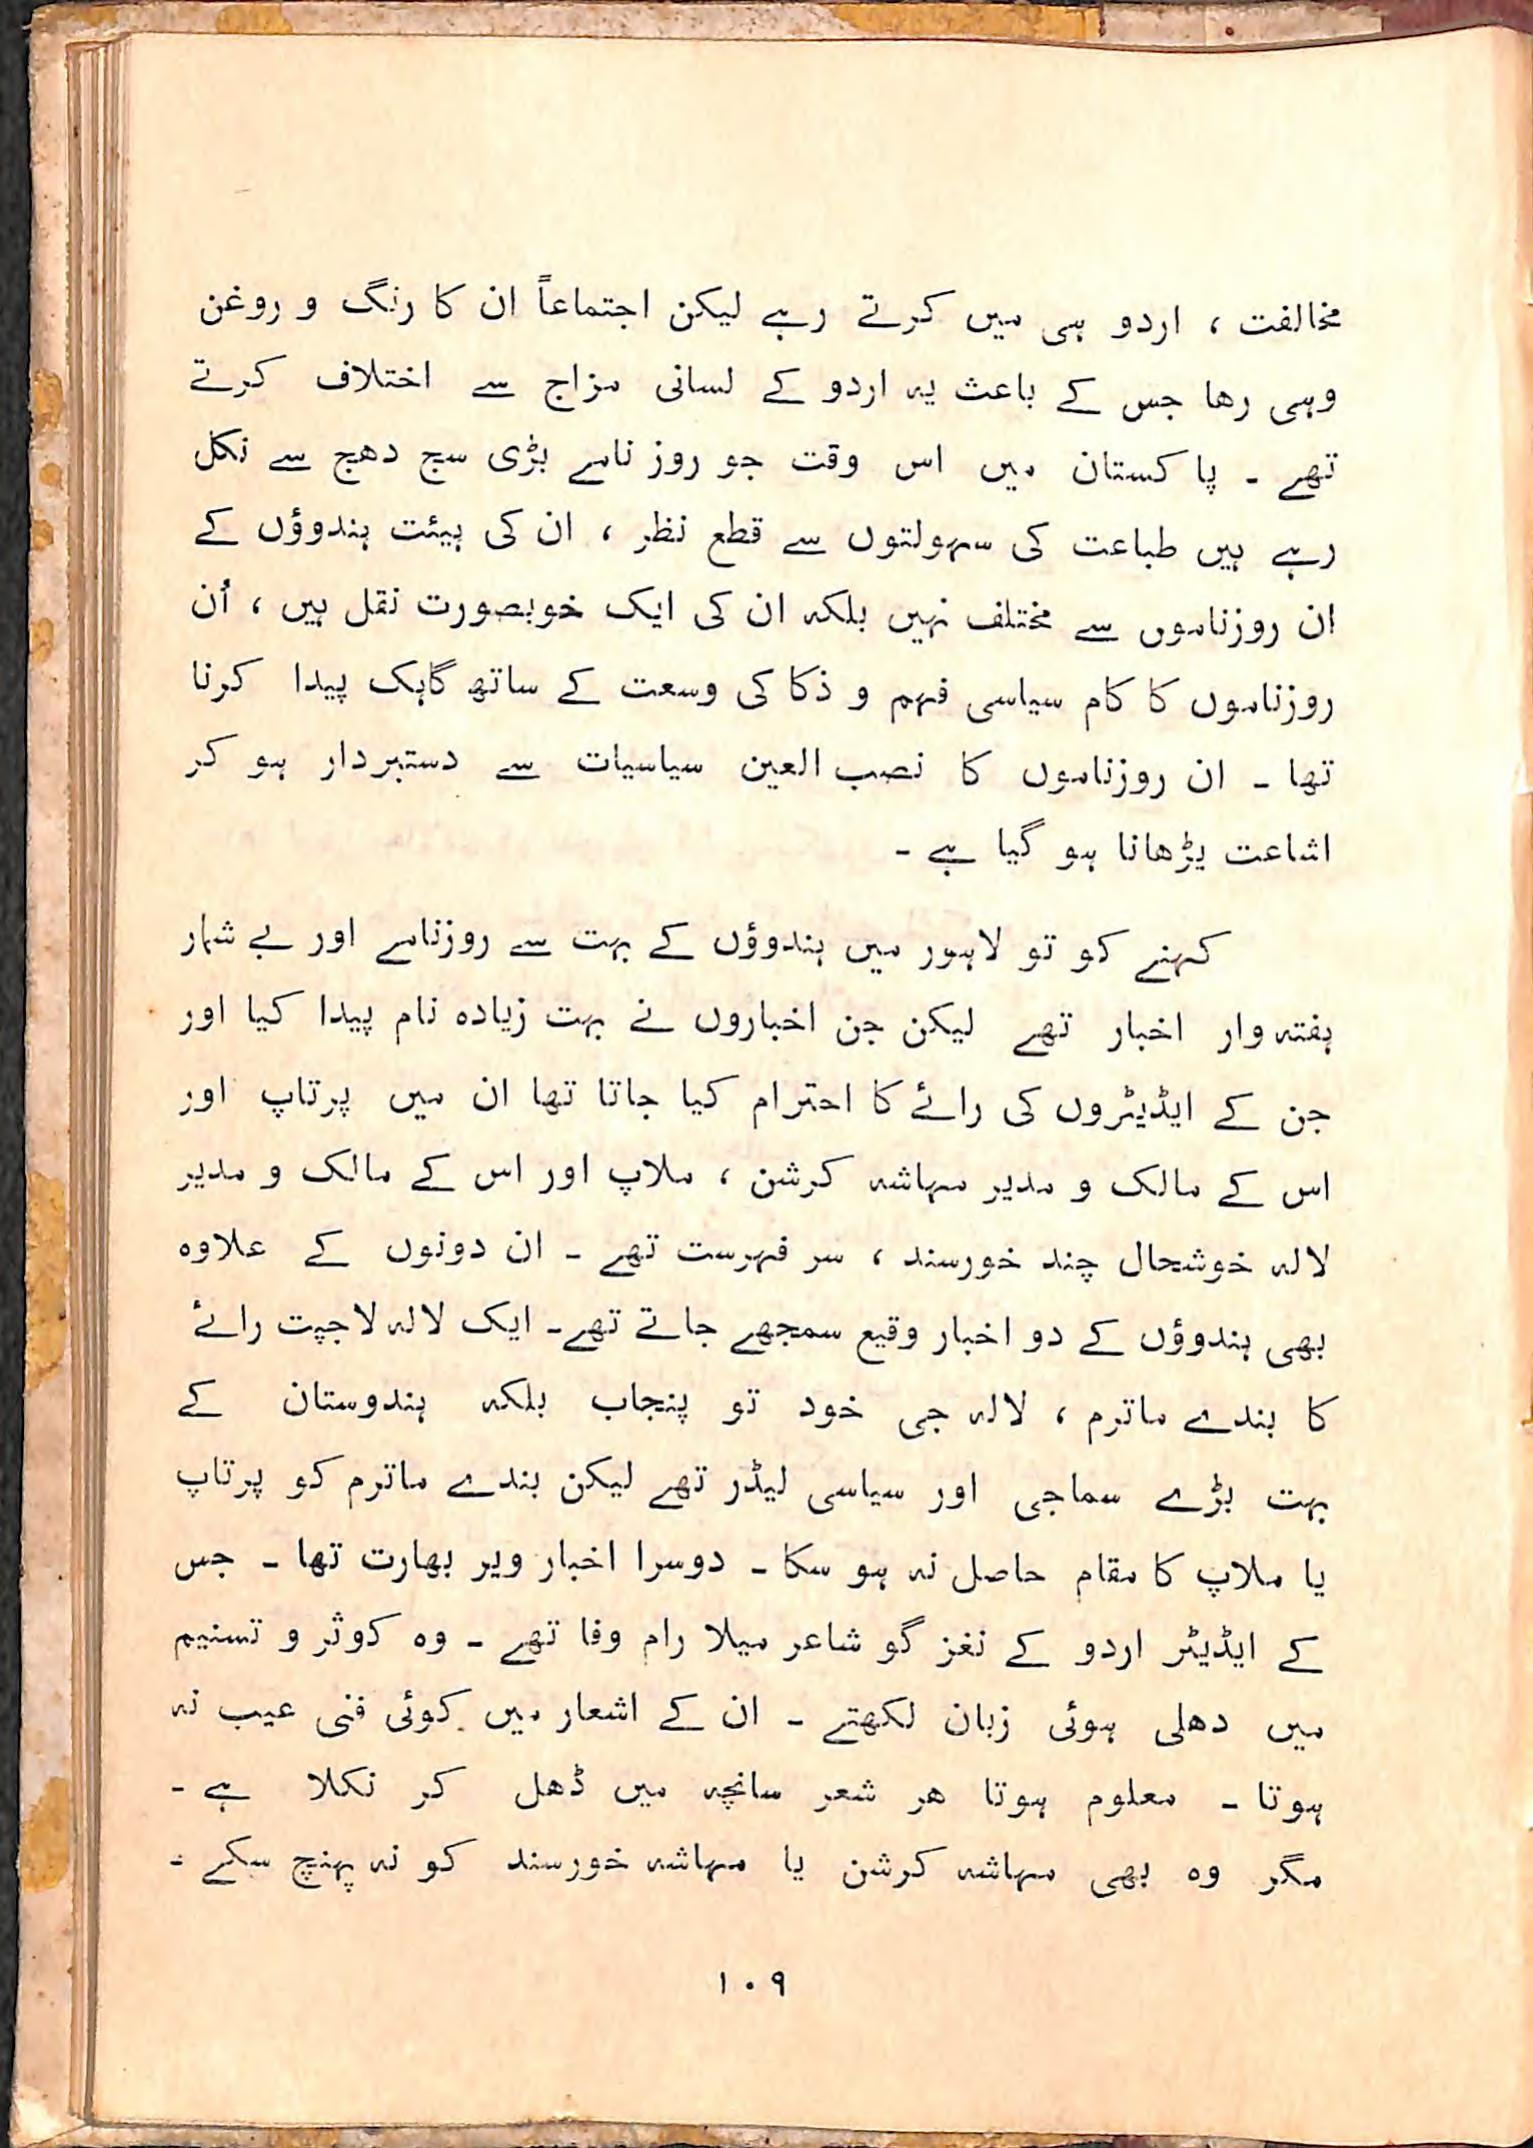 مخالفت ، اردو ہی میں کرتے رہے لیکن اجتماعاً ان کا رنگ و روغن
وہی رھا جس کے باعث یہ اردو کے لسانی مزاج سے اختلاف کرتے
تھے ۔ پاکستان میں اس وقت جو روز نامے بڑی سج دھج سے نکل
رہے ہیں طباعت کی سہولتوں سے قطع نظر ، ان کی ہیئت ہندوؤں کے
ان روزناموں سے مختلف نہیں بلکہ ان کی ایک خوبصورت نقل ہیں ، اُن
روزناموں کا کام سیاسی فہم و ذکا کی وسعت کے ساتھ گاہک پیدا کرنا
تھا ۔ ان روزناموں کا نصب العین سیاسیات سے دستبردار ہو کر
اشاعت یڑھانا ہو گیا ہے ۔
کہنے کو تو لاہور میں ہندوؤں کے بہت سے روزنامے اور بے شمار
ہفتہ وار اخبار تھے لیکن جن اخباروں نے بہت زیادہ نام پیدا کیا اور
جن کے ایڈیٹروں کی رائے کا احترام کیا جاتا تھا ان میں پرتاپ اور
اس کے مالک و مدیر مہاشہ کرشن ، ملاپ اور اس کے مالک و مدیر
لالہ خوشحال چند خورسند ، سر فہرست تھے ۔ ان دونوں کے علاوہ
بھی ہندوؤں کے دو اخبار وقیع سمجھے جاتے تھے۔ ایک لالہ لاجپت رائے
کا بندے ماترم ، لالہ جی خود تو پنجاب بلکہ ہندوستان کے
بہت بڑے سماجی اور سیاسی لیڈر تھے لیکن بندے ماترم کو پرتاپ
یا ملاپ کا مقام حاصل نہ ہو سکا ۔ دوسرا اخبار ویر بھارت تھا ۔ جس
کے ایڈیٹر اردو کے نغز گو شاعر میلا رام وفا تھے ۔ وہ کوثر و تسنیم
میں دھلی ہوئی زبان لکھتے ۔ ان کے اشعار میں کوئی فنی عیب نہ
ہوتا ۔ معلوم ہوتا ھر شعر سانچہ میں ڈھل کر نکلا ہے ۔
مگر وہ بھی مہاشہ کرشن یا مہاشہ خورسند کو نہ پہنچ سکے ۔
۱۰۹